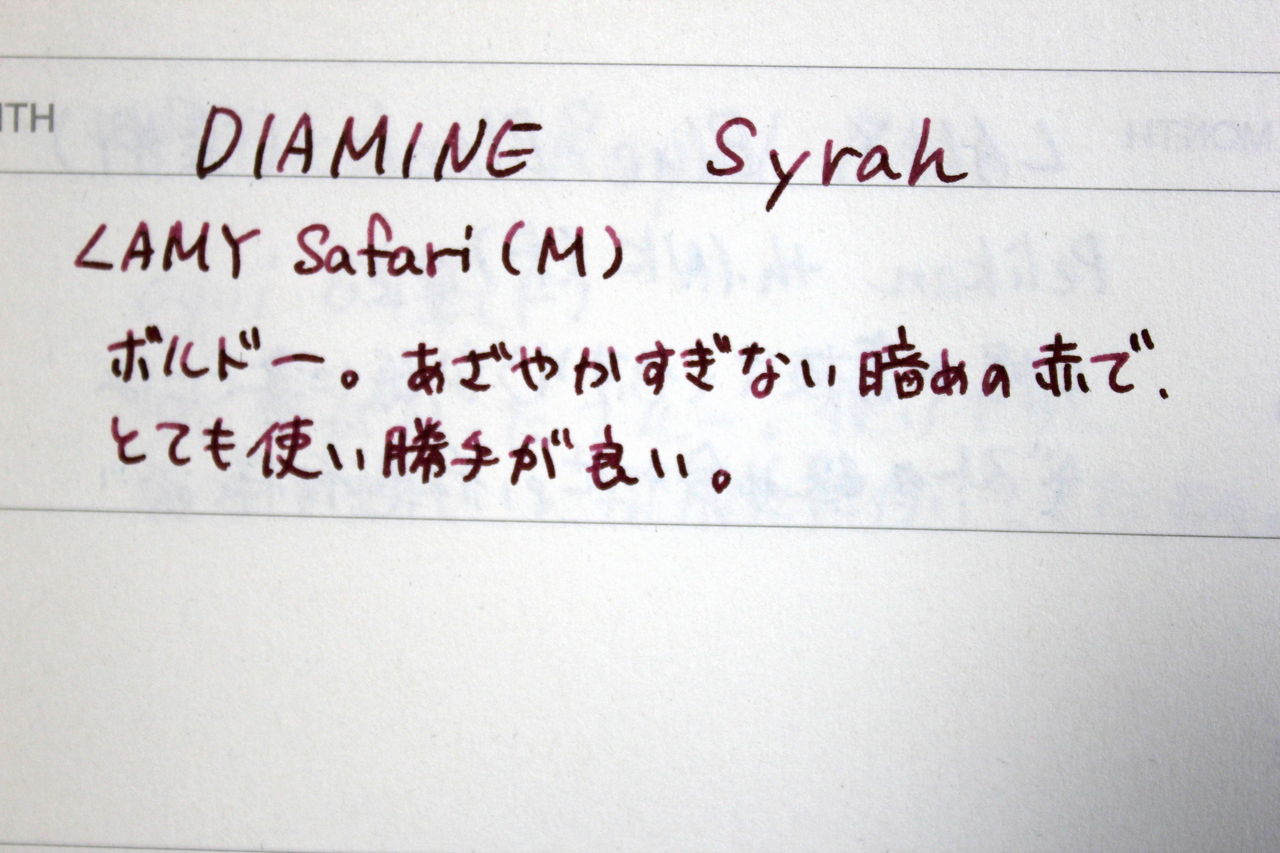 DIAMINE Syrah
LAMY Safari (M)
ボルドー。あざやかすぎない暗めの赤で、
とても使い勝手が良い。